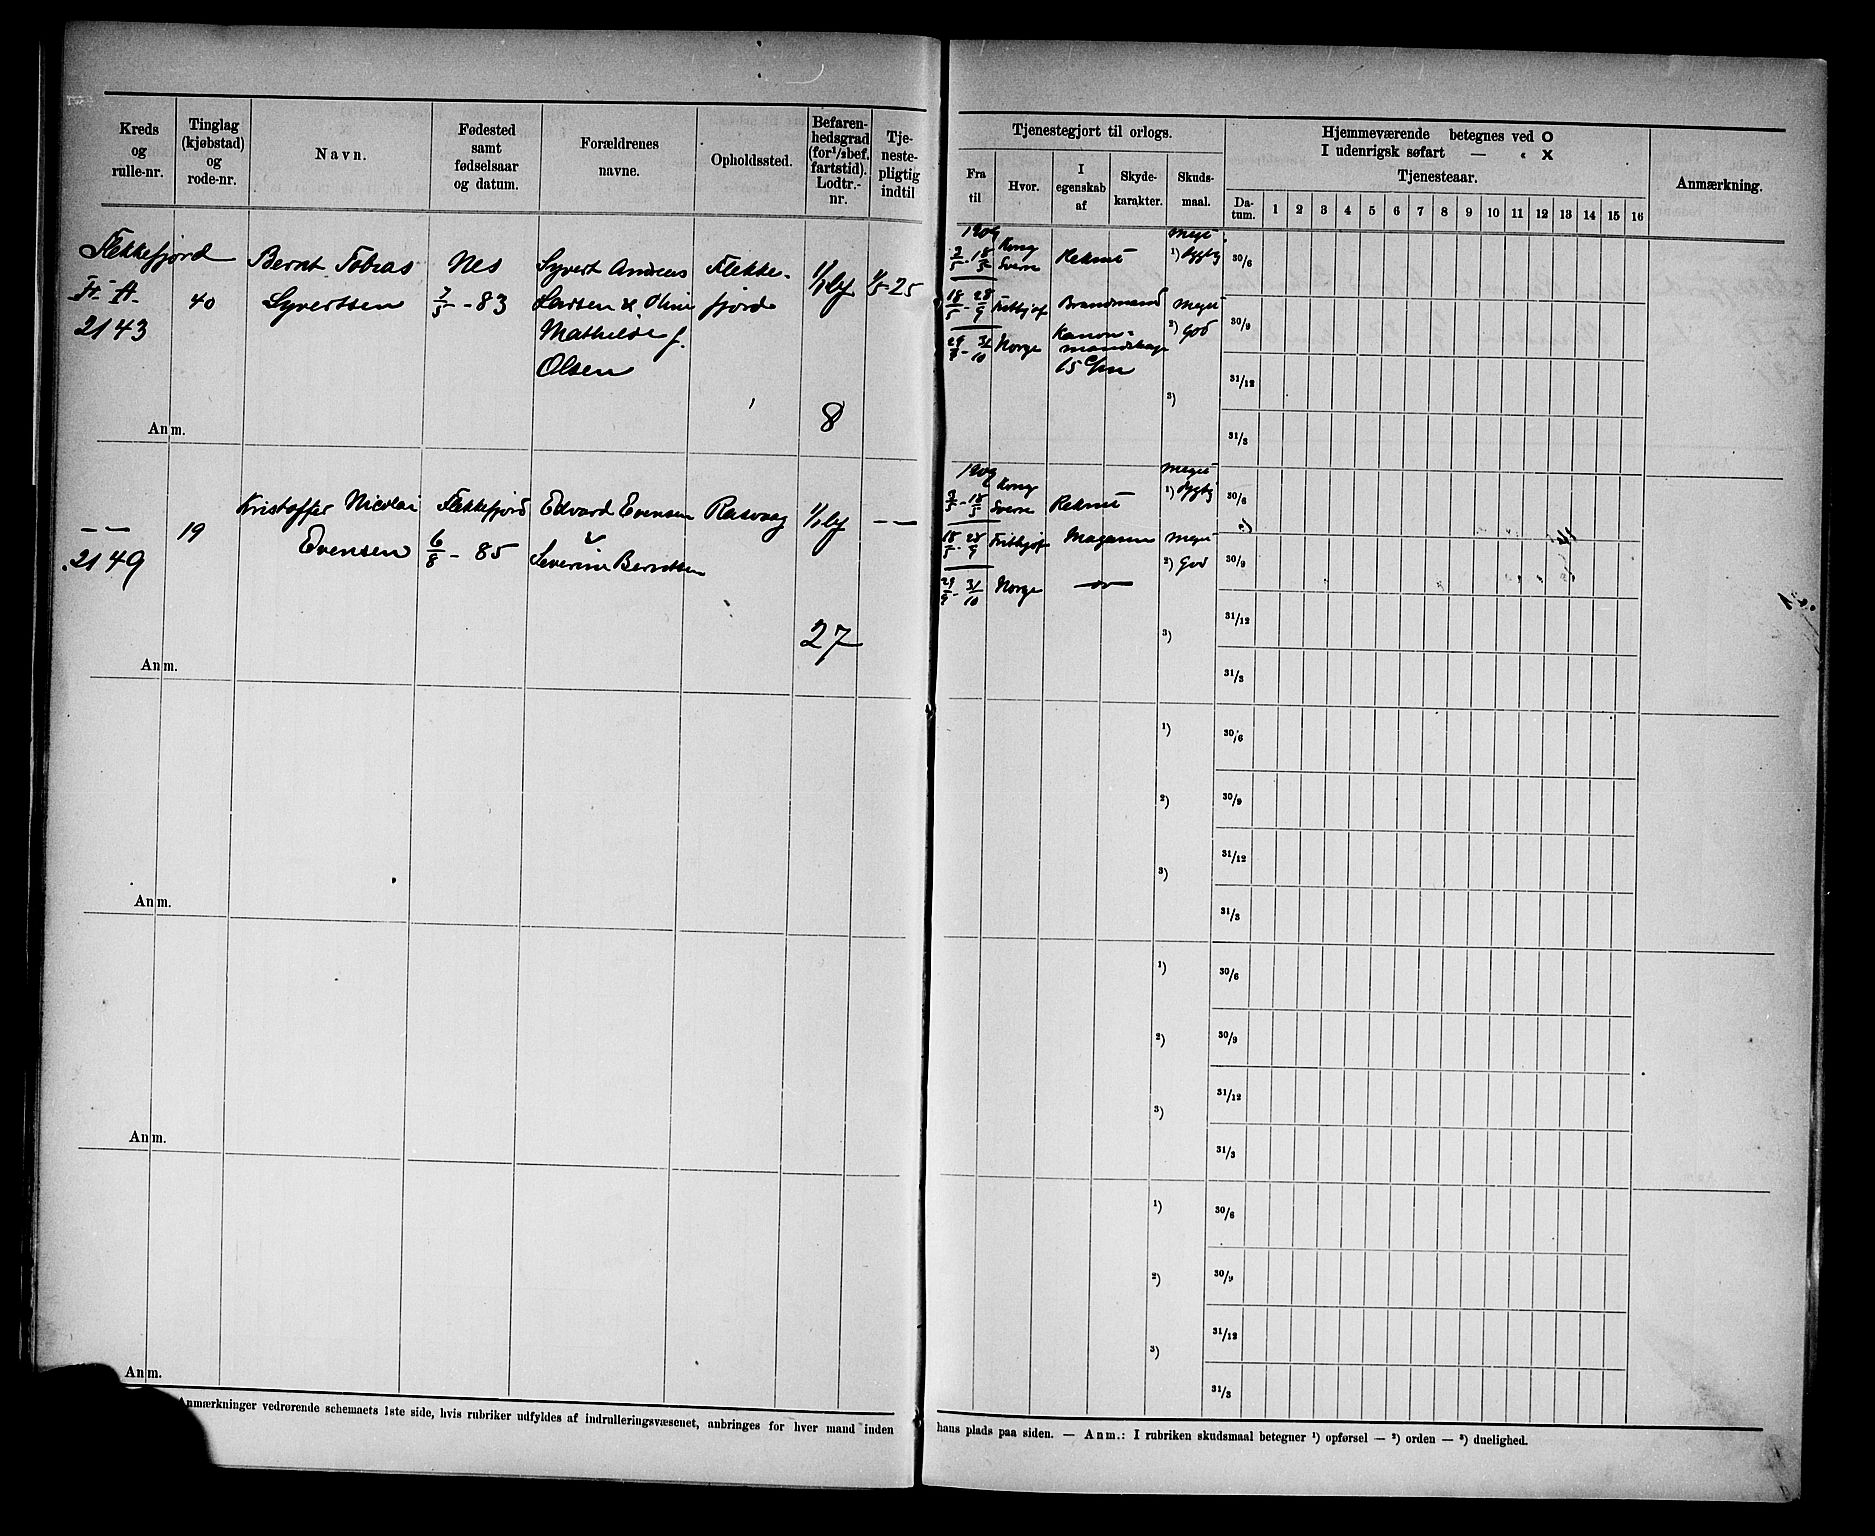 Kreds
og
rulle-nr.
Tinglag
(kjøbstad)
og
rode-nr.
Navn.
Fødested
samt
fødselsaar
og datum.
Forældrenes
navne.
Opholdssted.
Befaren-
hedsgrad
(for ¹/₂ bef.
fartstid).
Lodtr.-
nr.
Tje-
neste-
pligtig
indtil
Tjenestegjort til orlogs.
Fra
til
Hvor.
I
egenskab
af
Skyde-
karakter.
Skuds-
maal.
Hjemmeværende betegnes ved O
I udenrigsk søfart — „ X
Tjenesteaar.
Da-
tum. 1 2 3 4 5 6 7 8 9 10 11 12 13 14 15 16
Anmærkning.
Flekkefjord
Fr. A.
2143
40
Bernt Tobias
Syvertsen
Nes
7/5 - 83
Syvert Andreas
Larsen & Oline
Mathilde f.
Olsen
Flekke-
fjord
1/1 bf
8
1/5-25
Anm.
1909
2/5 - 18/5 Kong
Sverre Rekrut
18/5 - 28/9 Frithjof Brandmand
29/9 - 31/10 Norge Kanon-
mandskap
15 c/m
Meget
1) dygtig
Meget
2) God
3)
30/6
30/9
31/12
31/3
— —
2149
19
Kristoffer Nicolai
Evensen
Flekkefjord
6/8 - 85
Edvard Evensen
&
Severine Berntsen
Rasvaag
1/1 bf
27
— —
Anm.
1909
2/5 - 18/5 Kong
Sverre Rekrut
18/5 - 28/9 Frithjof Magasin
29/9 - 31/10 Norge —„—
Meget
1) dygtig
Meget
2) God
3)
30/6
30/9
31/12
31/3
Anm.
1)
2)
3)
30/6
30/9
31/12
31/3
Anm.
1)
2)
3)
30/6
30/9
31/12
31/3
Anm.
1)
2)
3)
30/6
30/9
31/12
31/3
Anmærkninger vedrørende schemaets 1ste side, hvis rubriker udfyldes af indrulleringsvæsenet, anbringes for hver mand inden hans plads paa siden. — Anm.: I rubriken skudsmaal betegner ¹) opførsel — ²) orden — ³) duelighed.